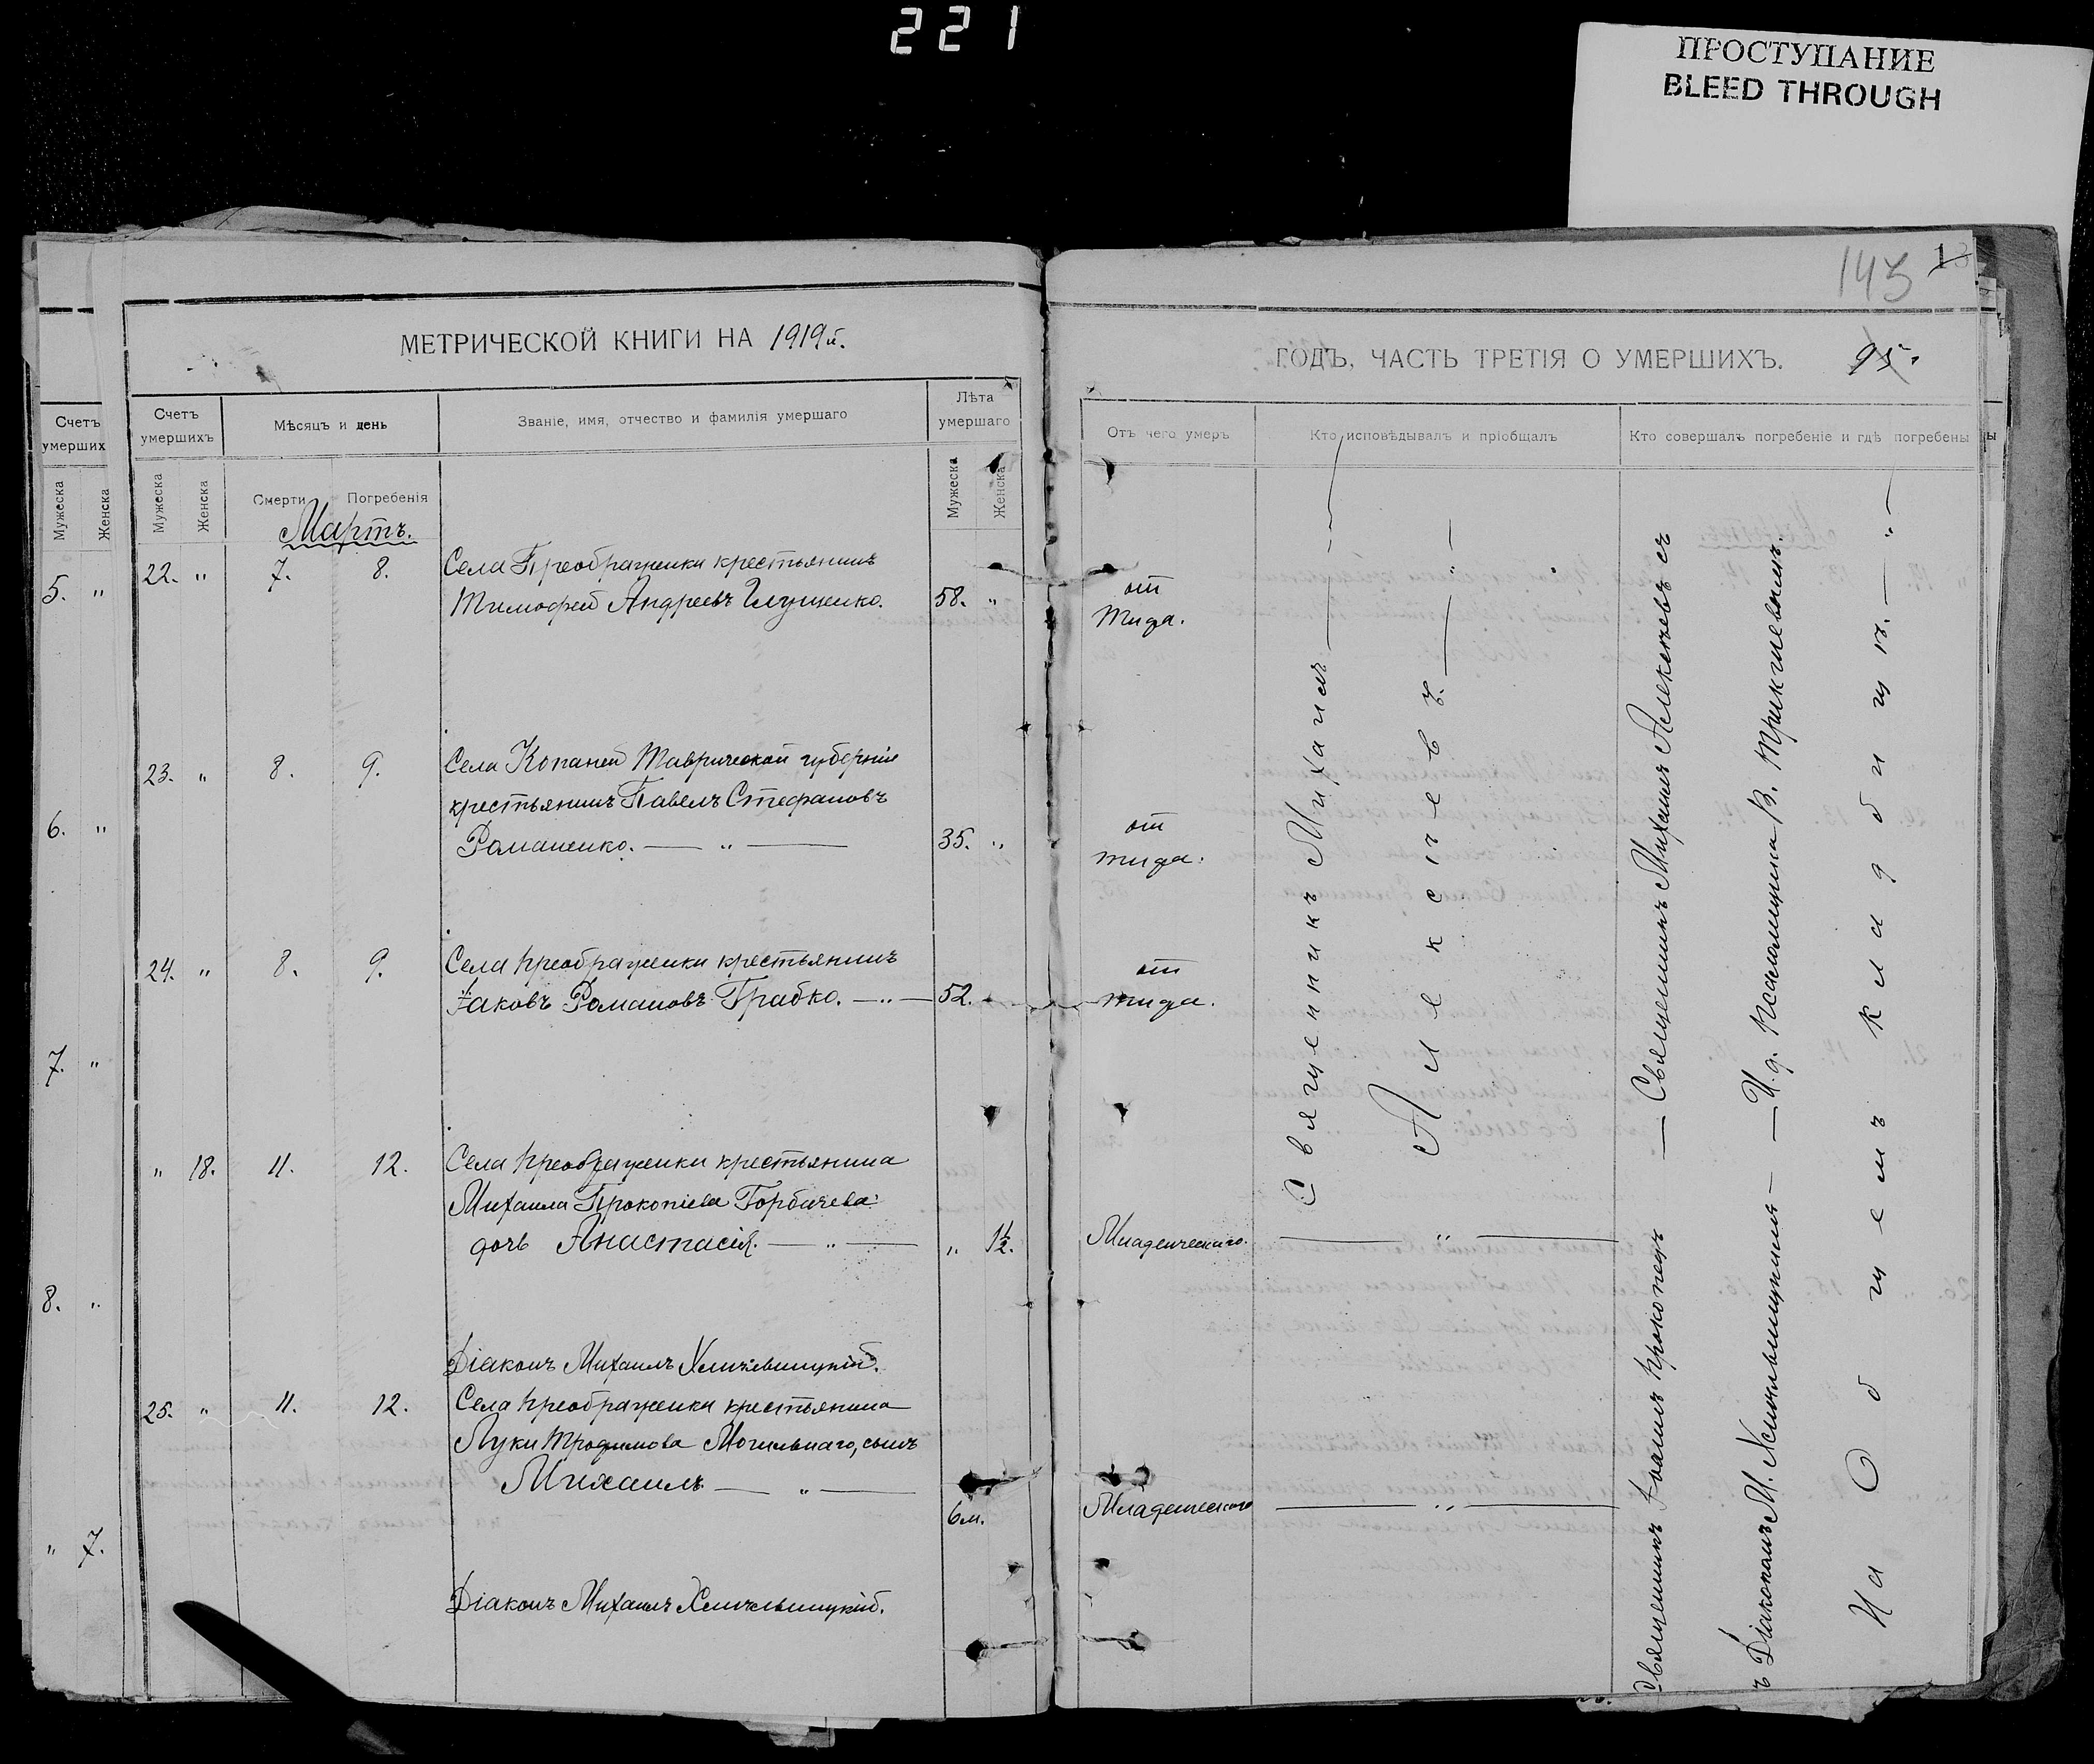 221
ПРОСТУПАНИЕ
BLEED THROUGH
143
МЕТРИЧЕСКОЙ КНИГИ НА 1919й.
Счетъ умершихъ
Мѣсяцъ и день
Званіе, имя, отчество и фамилія умершаго
Лѣта умершаго
Мужеска
Женска
Смерти
Погребенія
Мужеска
Женска
Мартъ.
22. " 7. 8. Села Преображенки крестьянинъ
Тимофей Андреевъ Глущенко. 58. "
23. " 8. 9. Села Копаней Таврической губерніи
крестьянинъ Павелъ Стефановъ
Романенко. — " — 35. "
24. " 8. 9. Села Преображенки крестьянинъ
Іаковъ Романовъ Грабко. — " — 52.
" 18. 11. 12. Села Преображенки крестьянина
Михаила Прокопіева Горбачева
дочь Анастасія. — " — " 1½.
Діаконъ Михаилъ Хмельницкій.
25. " 11. 12. Села Преображенки крестьянина
Луки Трофимова Могильнаго, сынъ
Михаилъ — " —
6 м.
Діаконъ Михаилъ Хмельницкій.
Счетъ
умерших
Мужеска
Женска
5. "
6. "
7. "
8. "
" 7.
ГОДЪ, ЧАСТЬ ТРЕТІЯ О УМЕРШИХЪ. 95.
Отъ чего умеръ
Кто исповѣдывалъ и пріобщалъ
Кто совершалъ погребеніе и гдѣ погребены
от
тифа.
от
тифа.
от
тифа.
Младенческаго. — " —
Младенческаго — " —
Священникъ Михаилъ
Алексѣевъ. — " —
Священникъ Іоаннъ Прокопецъ — Священникъ Михаилъ Алексѣевъ съ
ъ Діакономъ М. Хмельницкимъ — И. д. Псаломщика В.
На Общемъ кладбищѣ. — " —